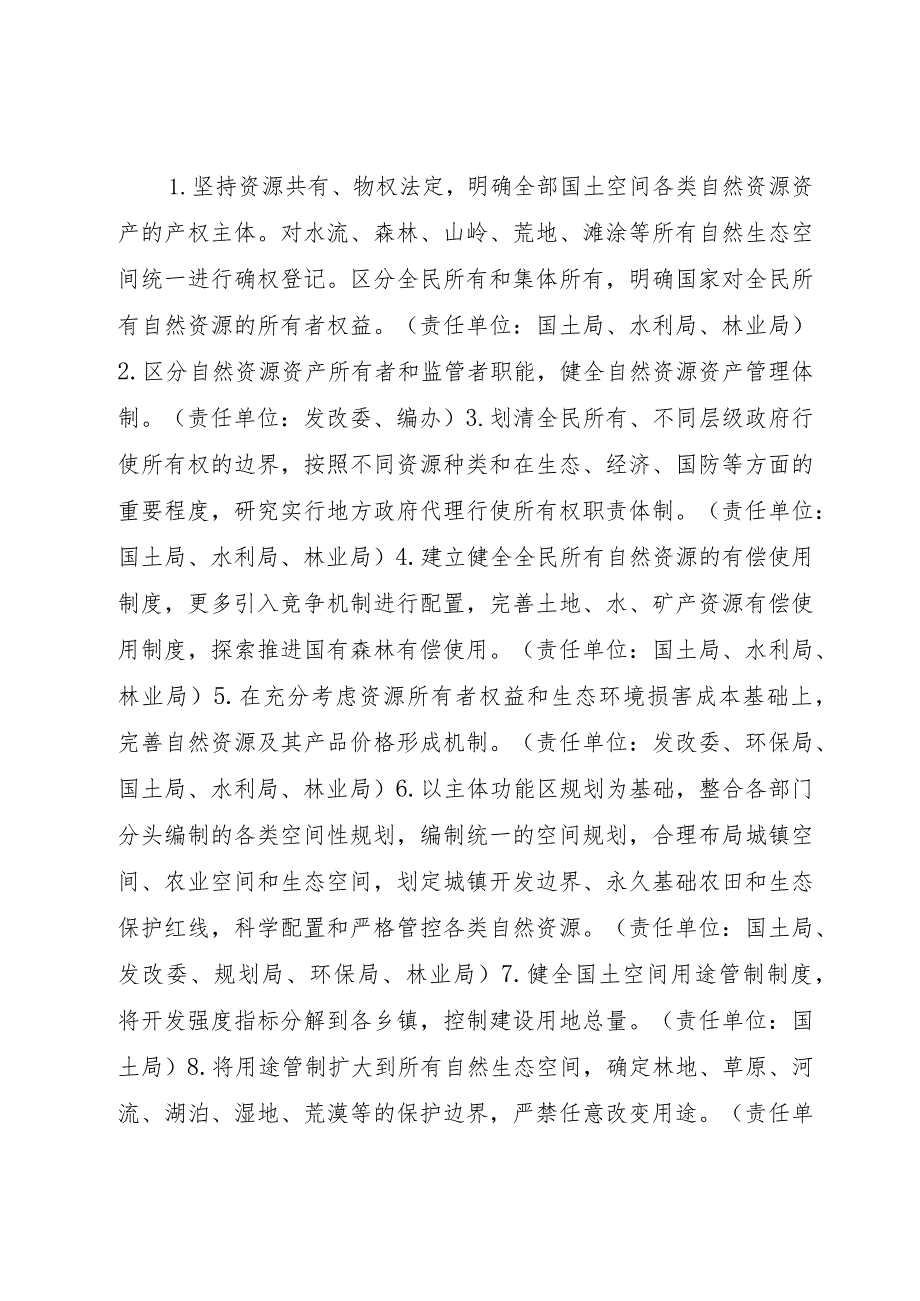 1.坚持资源共有、物权法定，明确全部国土空间各类自然资源资
产的产权主体。对水流、森林、山岭、荒地、滩涂等所有自然生态空
间统一进行确权登记。区分全民所有和集体所有，明确国家对全民所
有自然资源的所有者权益。（责任单位：国土局、水利局、林业局）
2.区分自然资源资产所有者和监管者职能，健全自然资源资产管理体
制。（责任单位：发改委、编办）3.划清全民所有、不同层级政府行
使所有权的边界，按照不同资源种类和在生态、经济、国防等方面的
重要程度，研究实行地方政府代理行使所有权职责体制。（责任单位：
国土局、水利局、林业局）4.建立健全全民所有自然资源的有偿使用
制度，更多引入竞争机制进行配置，完善土地、水、矿产资源有偿使
用制度，探索推进国有森林有偿使用。（责任单位：国土局、水利局、
林业局）5.在充分考虑资源所有者权益和生态环境损害成本基础上，
完善自然资源及其产品价格形成机制。（责任单位：发改委、环保局、
国土局、水利局、林业局）6.以主体功能区规划为基础，整合各部门
分头编制的各类空间性规划，编制统一的空间规划，合理布局城镇空
间、农业空间和生态空间，划定城镇开发边界、永久基础农田和生态
保护红线，科学配置和严格管控各类自然资源。（责任单位：国土局、
发改委、规划局、环保局、林业局）7.健全国土空间用途管制制度，
将开发强度指标分解到各乡镇，控制建设用地总量。（责任单位：国
土局）8.将用途管制扩大到所有自然生态空间，确定林地、草原、河
流、湖泊、湿地、荒漠等的保护边界，严禁任意改变用途。（责任单